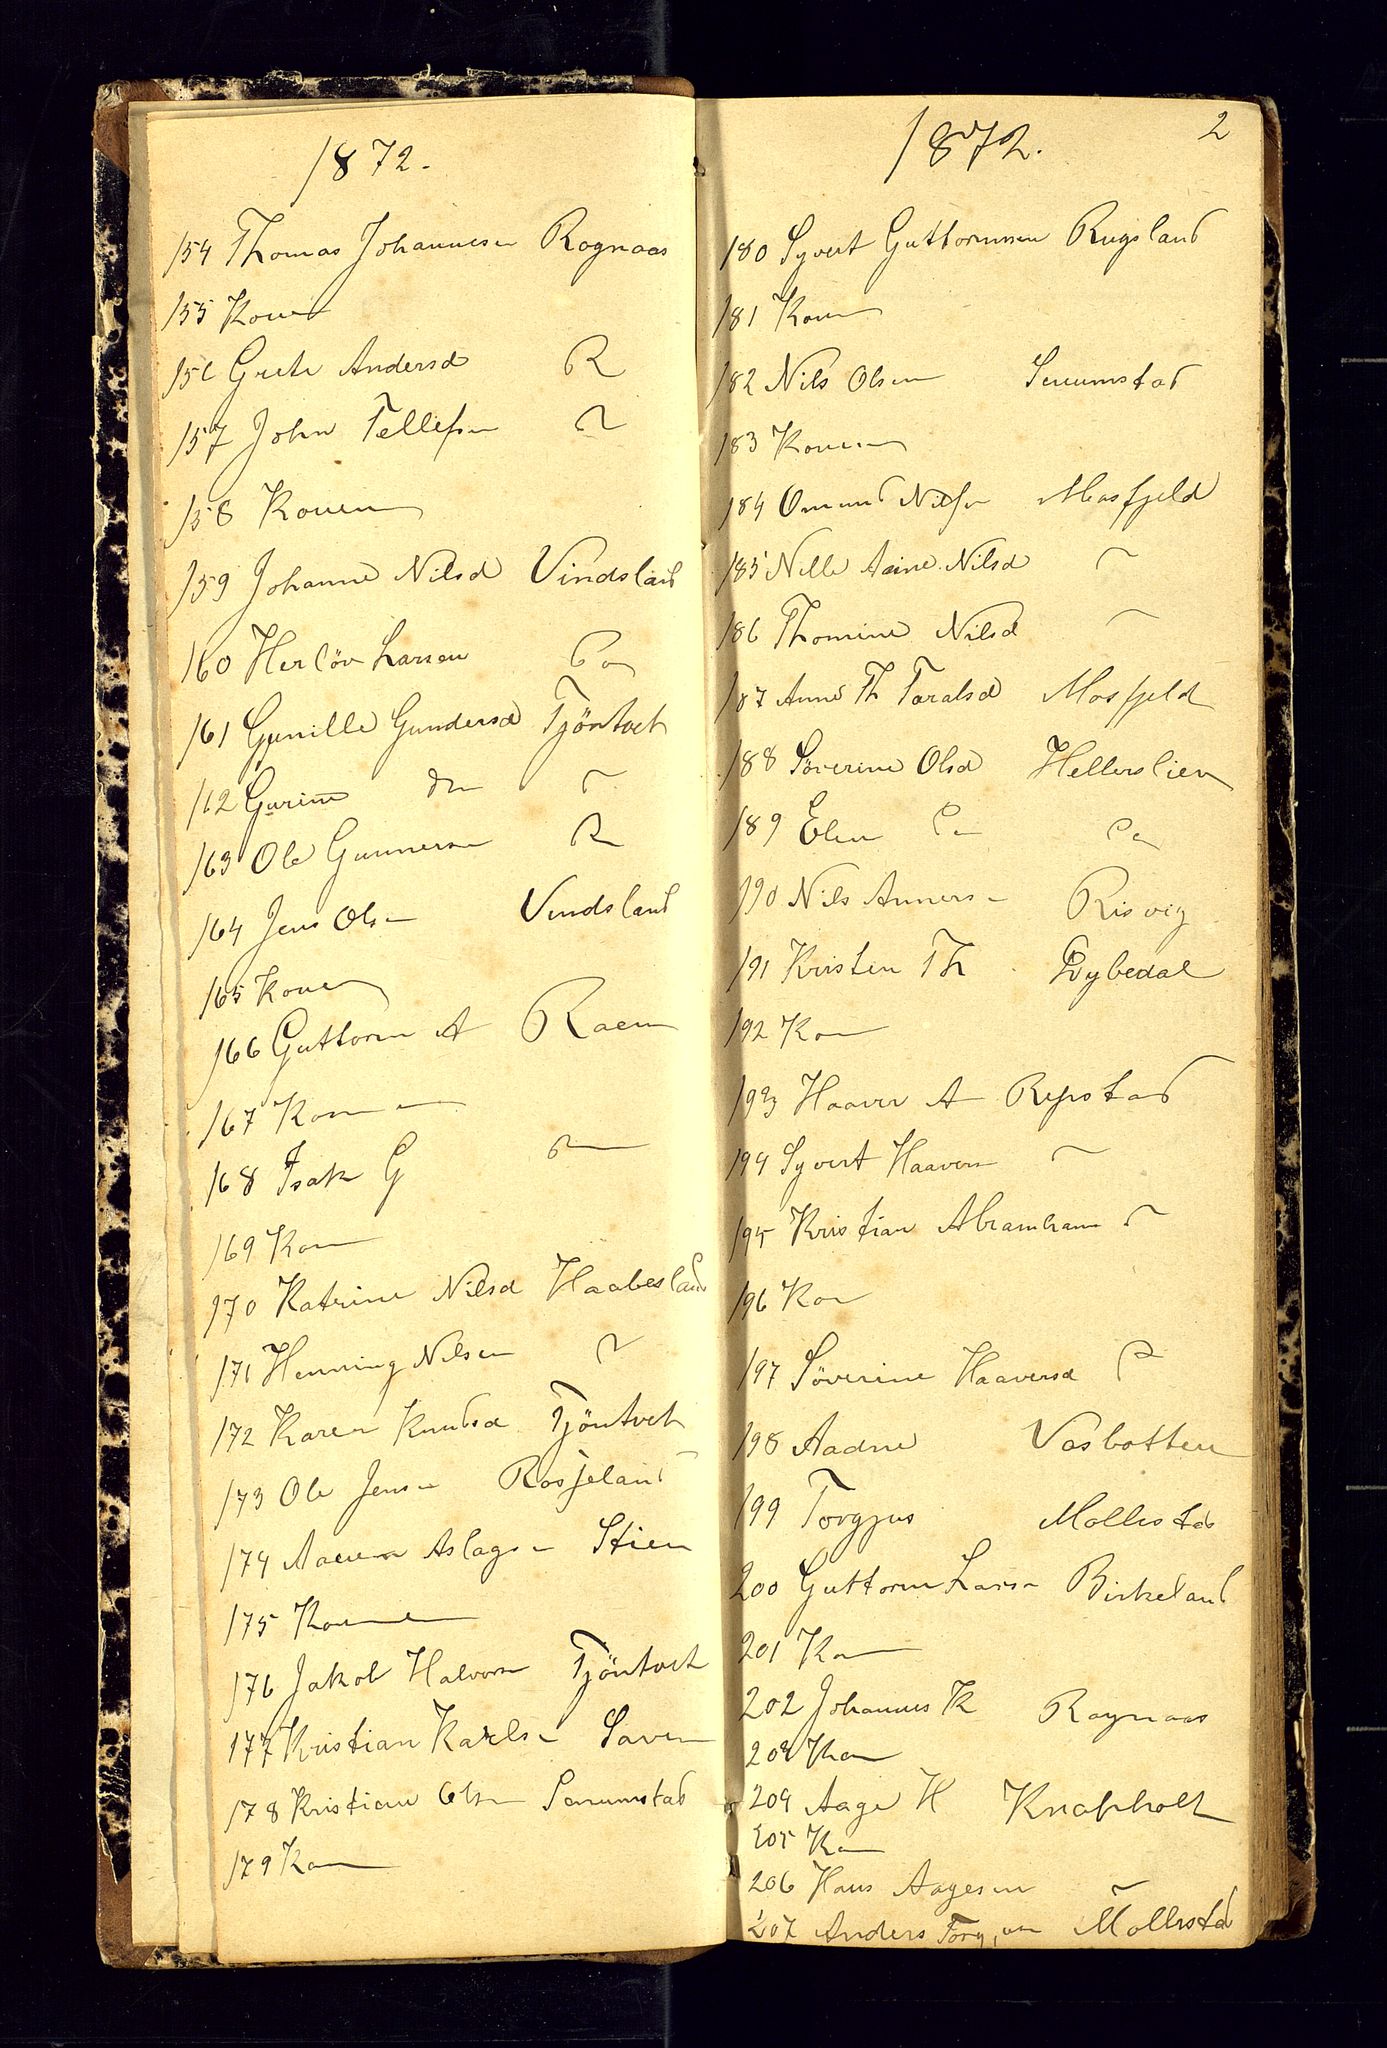 1872.
154 Thomas Johannesen Rognaas
155 Konen
156 Grete Andersd R
157 John Tellefsen
158 Konen
159 Johanne Nilsd Vindsland
160 Herlöv Larsen Do
161 Gunille Gundersd Tjöntvet
162 Gurine
163 Ole Gunnersen R
164 Jens Olsen Vindsland
165 Konen
166 Guttorm A Raen
167 Konen
168 Isak G
169 Kon
170 Katrine Nilsd Haabesland
171 Henning Nilsen
172 Karen Knudsd Tjöntvet
173 Ole Jensen Rosseland
174 Aslagsen Stien
175 Konen
176 Jakob Halvorsen Tjöntvet
177 Kristian Karlsen Saven
178 Kristian Olsen Senumstad
179 Kon
1872. 2
180 Syvert Guttormsen Rugsland
181 Kon
182 Nils Olsen Senumstad
183 Konen
184 Omund Nilsen Mosfjeld
185 Nille Aanine Nilsd
186 Thomine Nilsd
187 Anne Th Taralsd Mosfjeld
188 Söverine Olsd Hellerslien
189 Elen Do Do
190 Nils Annersen Risvig
191 Kristen Th Dybedal
192 Kon
193 Haaver A Repstad
194 Syvert Haaversen
195 Kristian Abramham
196 Kon
197 Söverine Haaversd
198 Aadne Vasbotten
199 Torgjus Mollestad
200 Guttorm Larsen Birkeland
201 Kon
202 Johannes K Rognaas
203 Kon
204 Aage H Knapholt
205 Kon
206 Hans Aagesen
207 Anders Mollestad